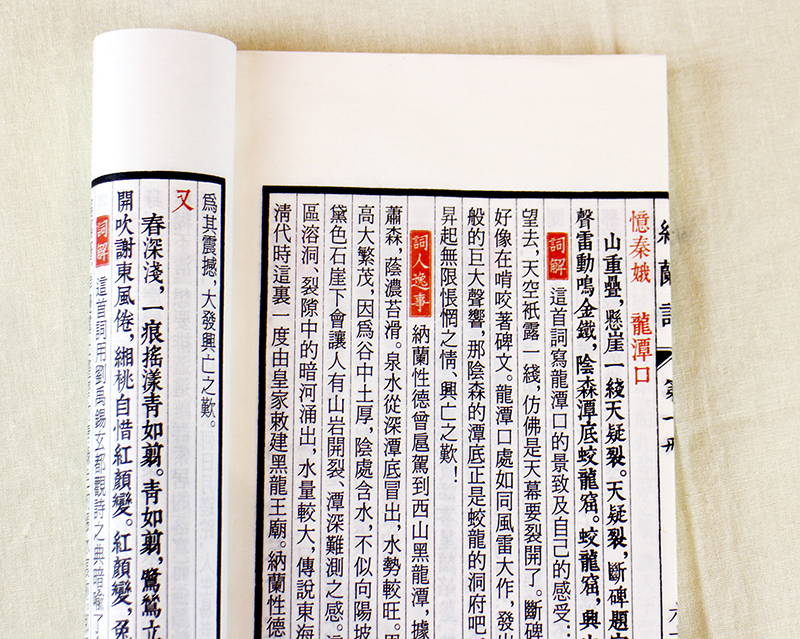 憶秦娥 龍潭口
山重疊，懸崖一綫天疑裂。天疑裂，斷碑題
聲雷動鳴金鐵，陰森潭底蛟龍窟。蛟龍窟，興
詞解 這首詞寫龍潭口的景致及自己的感受：
望去，天空衹露一綫，仿佛是天幕要裂開了。斷碑
好像在啃咬著碑文。龍潭口處如同風雷大作，發出
般的巨大聲響，那陰森的潭底正是蛟龍的洞府吧
昇起無限悵惘之情、興亡之歎！
詞人逸事 納蘭性德曾扈駕到西山黑龍潭，據
蕭森，蔭濃苔滑。泉水從深潭底冒出，水勢較旺。
高大繁茂，因爲谷中土厚，陰處含水，不似向陽坡
黛色石崖下會讓人有山岩開裂、潭深難測之感。
區溶洞、裂隙中的暗河涌出，水量較大，傳說東海
清代時這裏一度由皇家敕建黑龍王廟。納蘭性德
第一册
爲其震撼，大發興亡之歎。
又
春深淺，一痕搖漾青如剪。青如剪，鷺鷥立
開吹謝東風倦，緗桃自惜紅顏變。紅顏變，兔
詞解 這首詞用劉禹錫玄都觀詩之典暗喻了